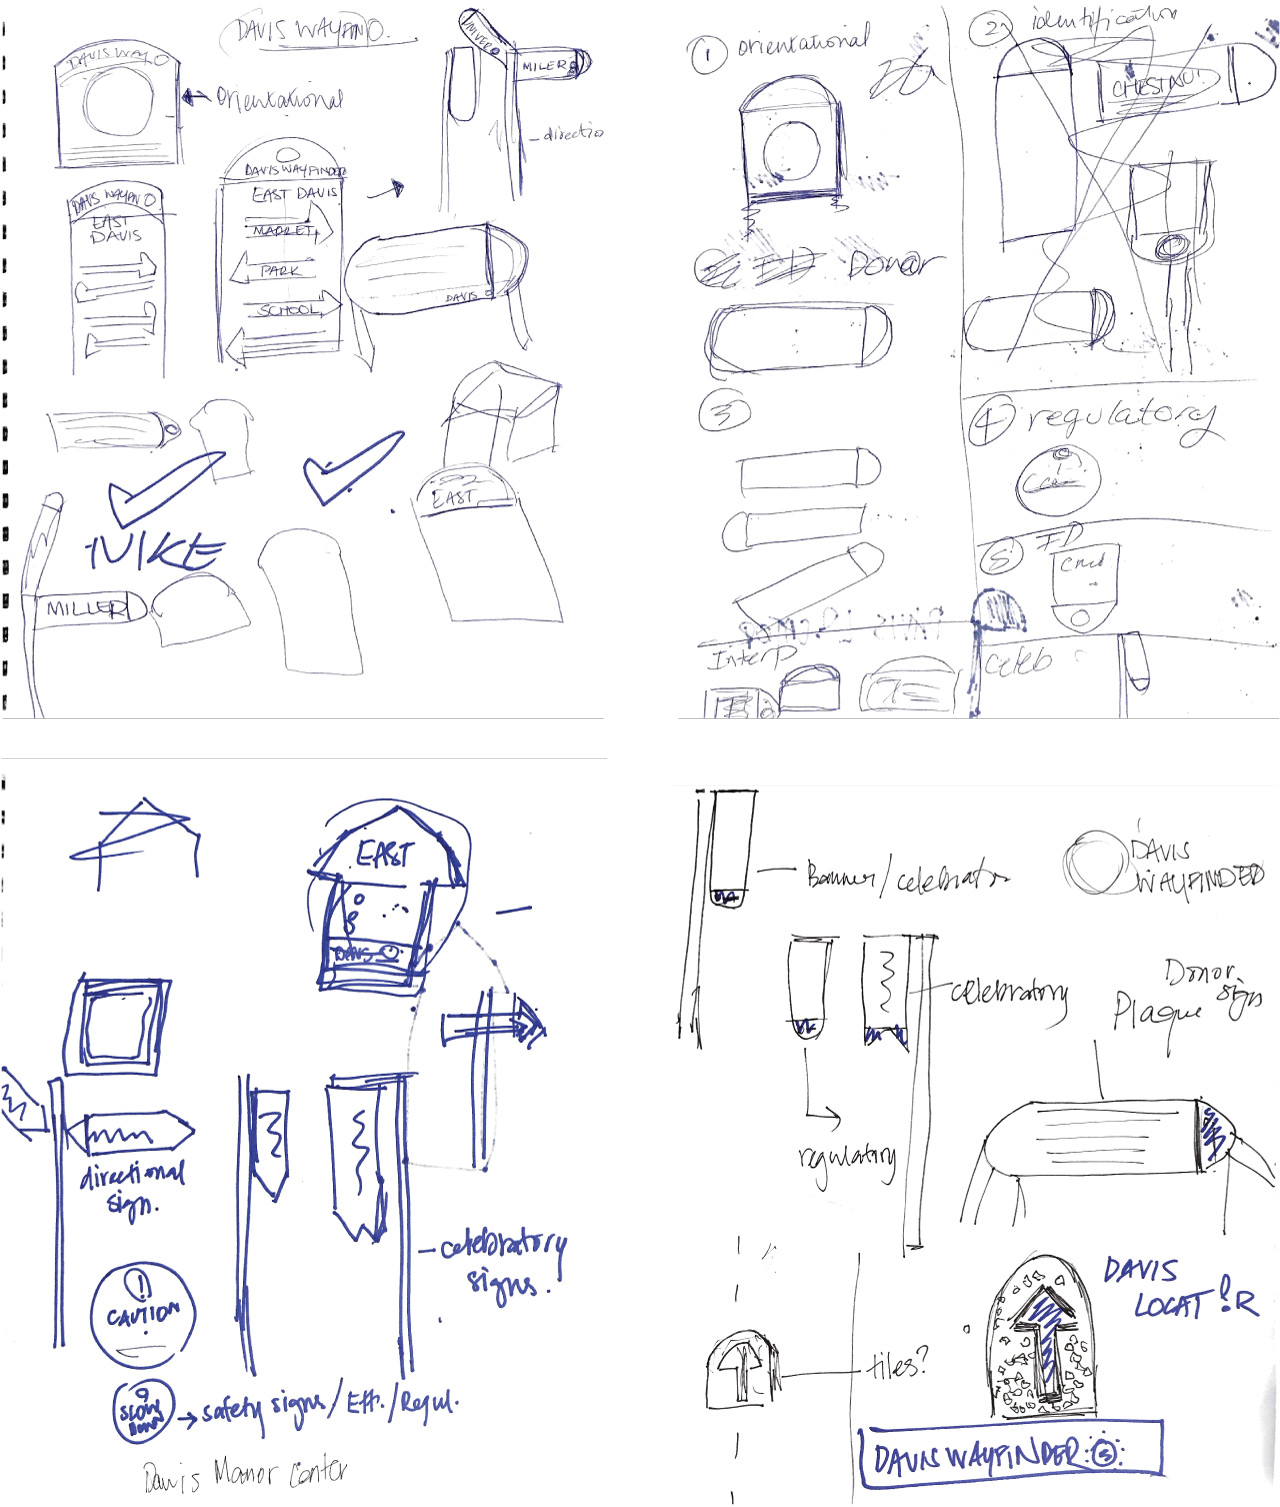 DAVIS WAYFIND.
DAVIS WAY
Orientational
MILER
directio
DAVIS WAYFIND
EAST
DAVIS
DAVIS WAYFINDER
EAST DAVIS
MARKET
PARK
SCHOOL
DAVIS
NIKE
EAST
MILLER
1 Orientational
2 identification
CHESTNUT
Donor
3
4 regulatory
5 ID
Interp
celeb
EAST
DAVIS
directional
sign.
celebratory
signs.
!
CAUTION
SLOW
DOWN
safety signs/Eff./Regul.
Davis Manor Center
Banner/celebrato
DAVIS
WAYFINDER
celebratory
Donor
sign
Plaque
regulatory
tiles?
DAVIS
LOCAT!R
DAVIS WAYFINDER